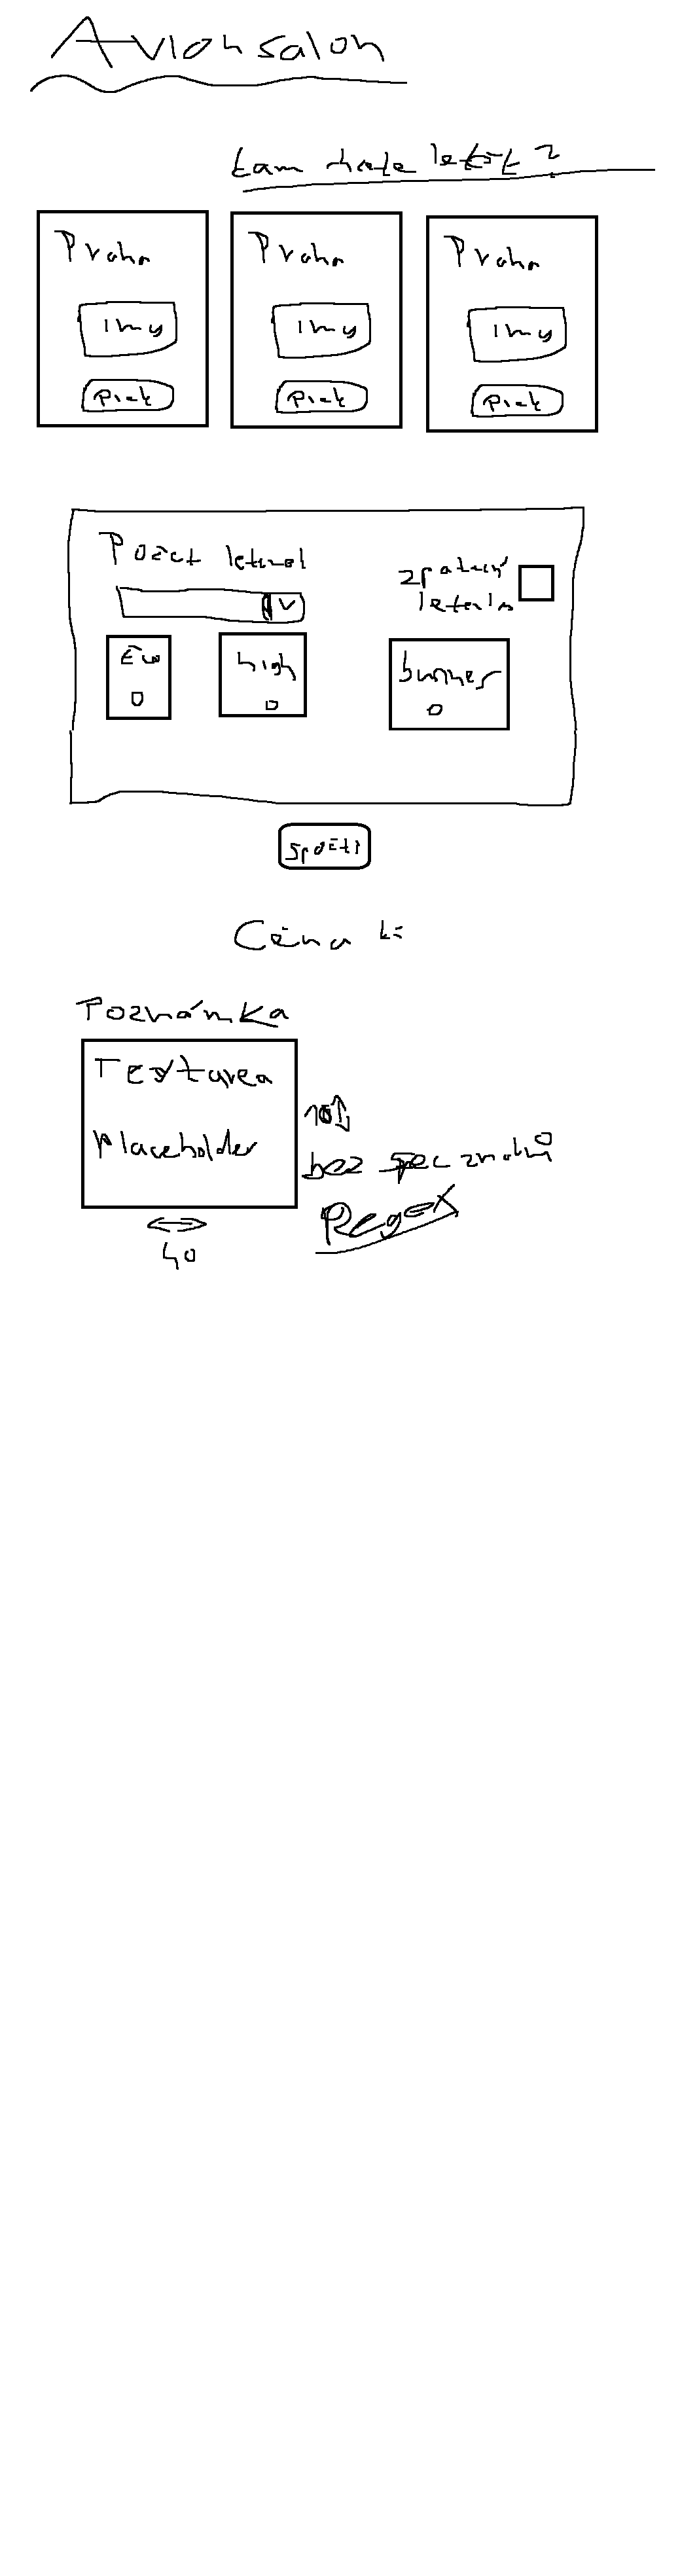 Avionsalon
kam chcete letět?
Praha
Praha
Praha
img
img
img
pick
pick
pick
Počet letenek
zpáteční
letenka
Eco
high
business
spočti
Cena Kč
Poznámka
Textarea
10
Placeholder
bez spec znaků
Regex
40